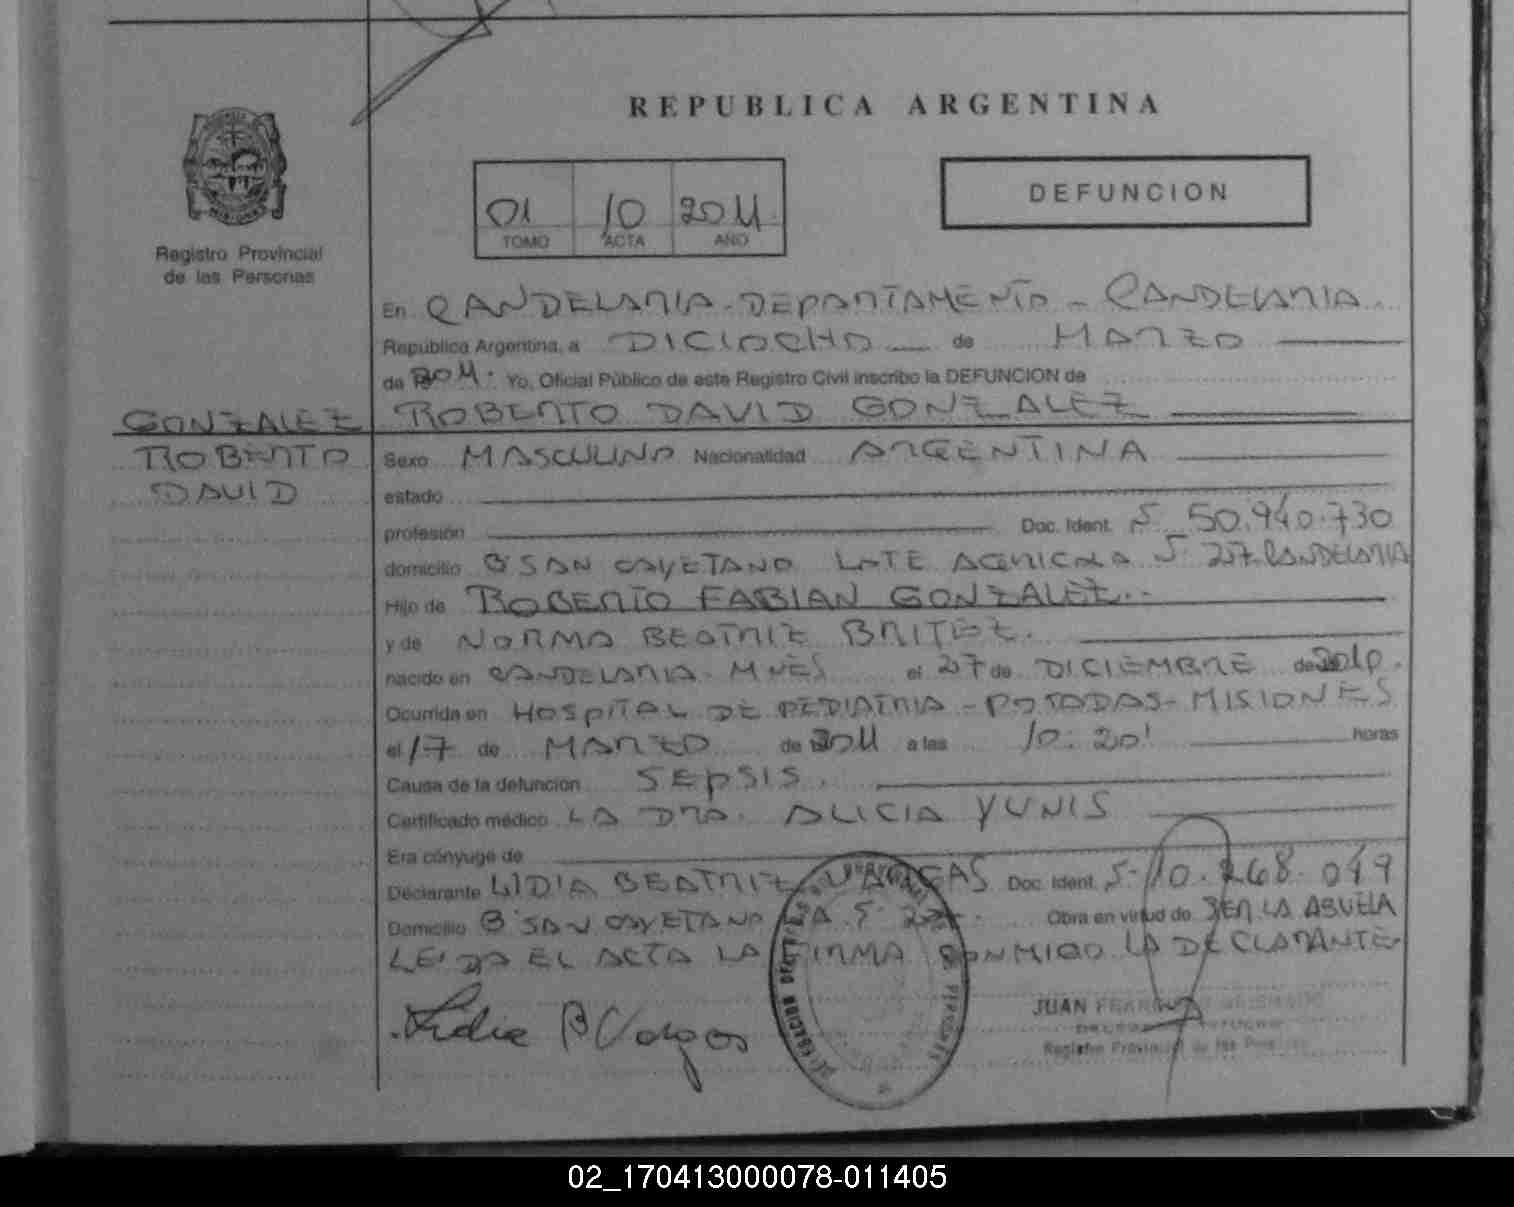 REPUBLICA ARGENTINA
DEFUNCION
01 10 2011
TOMO ACTA AÑO
Registro Provincial
de las Personas
En CANDELARIA - DEPARTAMENTO - CANDELARIA
República Argentina, a DICIOCHO de MARZO
de 2011. Yo, Oficial Público de este Registro Civil inscribo la DEFUNCION de
ROBERTO DAVID GONZALEZ
GONZALEZ
ROBERTO
DAVID
Sexo MASCULINO Nacionalidad ARGENTINA
estado
profesión Doc. Ident. 50.940.730
domicilio Bº SAN CAYETANO LOTE AGRICOLA 227. CANDELARIA
Hijo de ROBERTO FABIAN GONZALEZ.
y de NORMA BEATRIZ BRITEZ.
nacido en CANDELARIA - MNES el 27 de DICIEMBRE de 2010.
Ocurrida en HOSPITAL DE PEDIATRIA - POSADAS - MISIONES
el 17 de MARZO de 2011 a las 10:20' horas
Causa de la defunción SEPSIS.
Certificado médico LA DRA. ALICIA YUNIS
Era cónyuge de
Declarante LIDIA BEATRIZ VARGAS Doc. Ident. 10.268.049
Domicilio Bº SAN CAYETANO Obra en virtud de SER LA ABUELA
LEIDA EL ACTA LA FIRMA CONMIGO LA DECLARANTE.
Lidia B Vargas
JUAN
Registro Provincial de las Personas
02_170413000078-011405